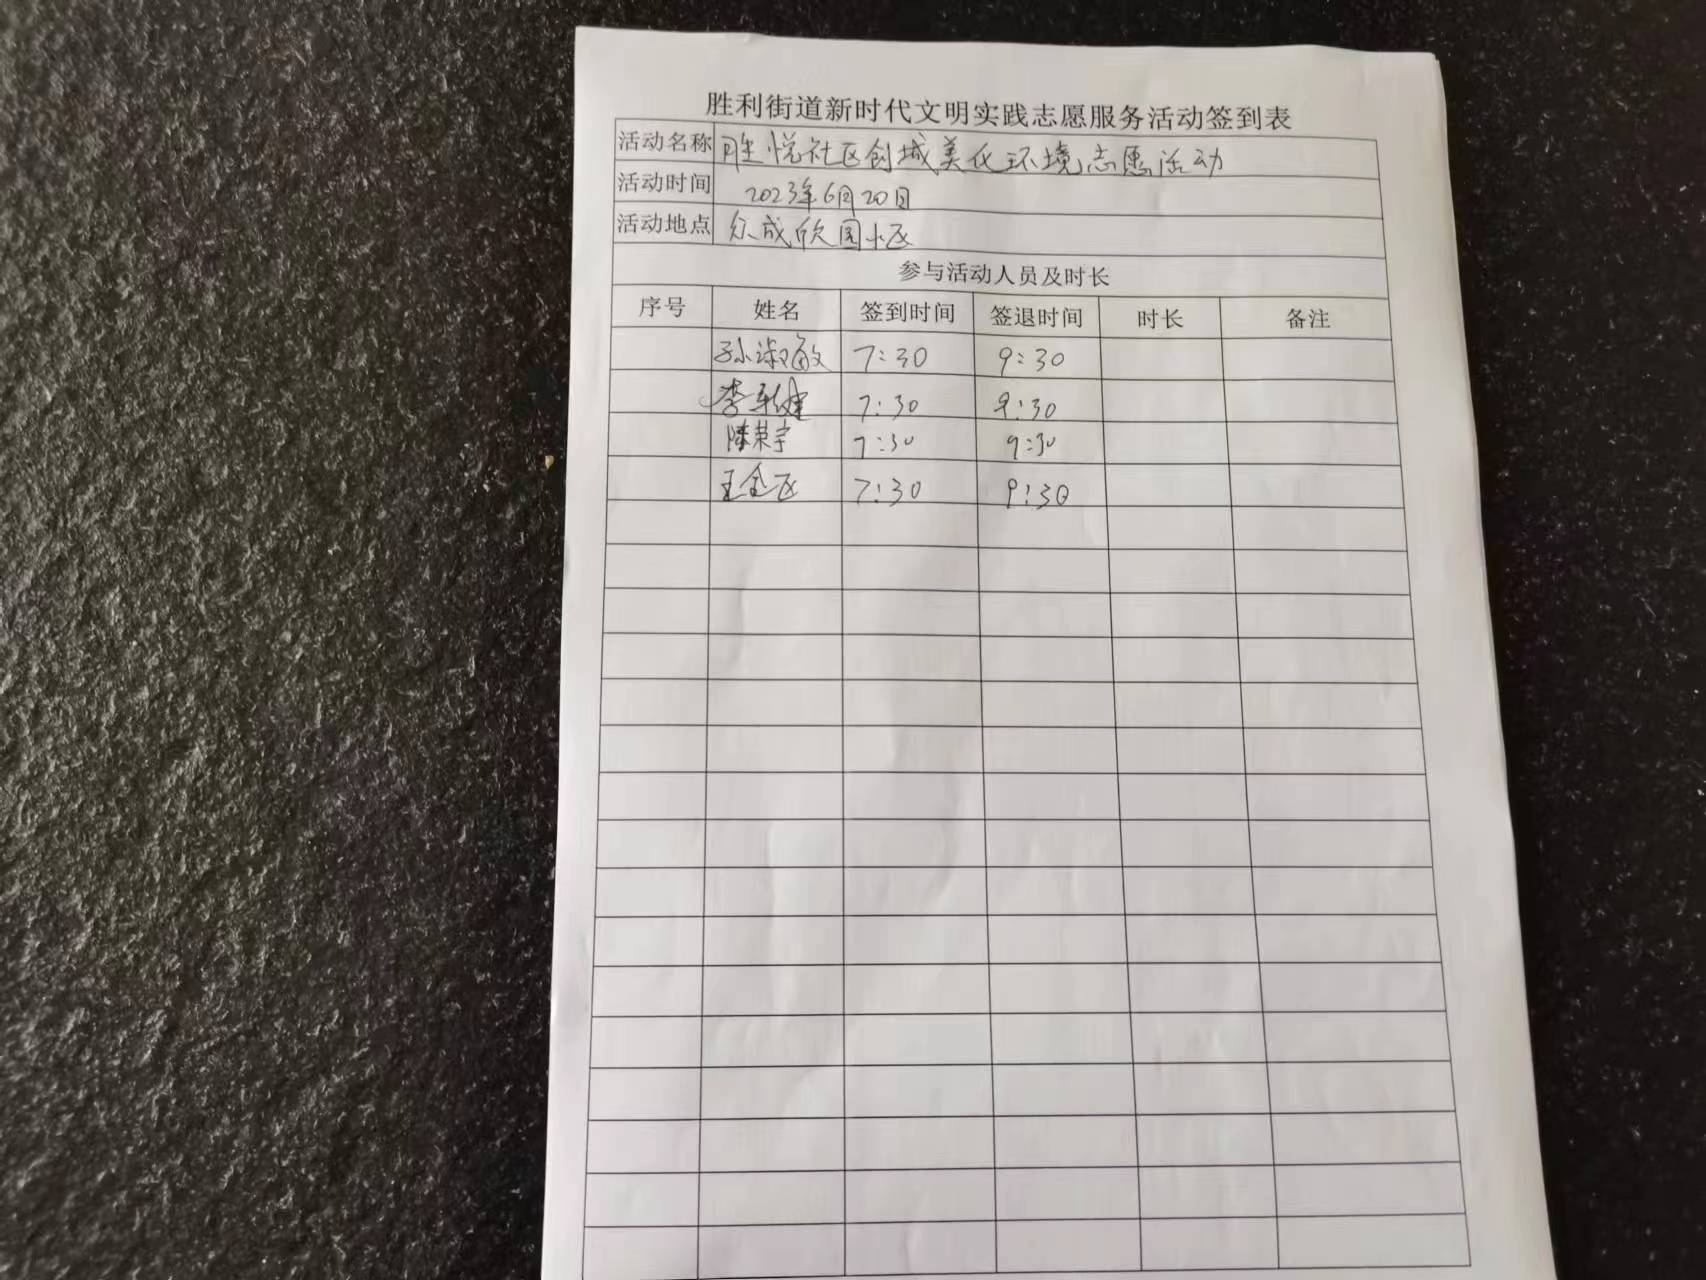 胜利街道新时代文明实践志愿服务活动签到表
活动名称 胜悦社区创城美化环境志愿活动
活动时间 2023年6月20日
活动地点 众成欣园小区
参与活动人员及时长
序号 姓名 签到时间 签退时间 时长 备注
孙淑敏 7:30 9:30
李 健 7:30 9:30
陈荣宇 7:30 9:30
王金 7:30 9:30